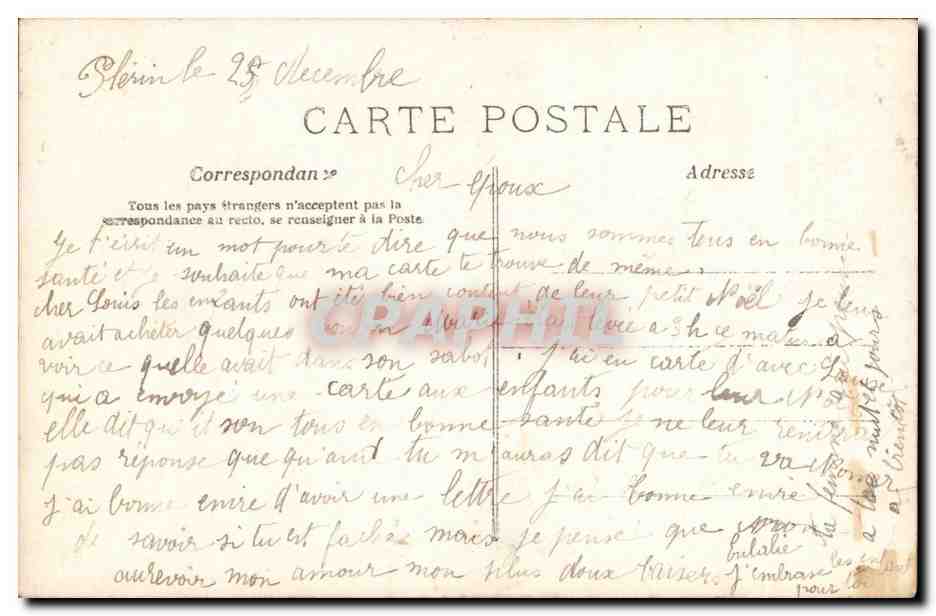 Plérin le 25 decembre
CARTE POSTALE
Correspondan
Adresse
cher époux
Tous les pays étrangers n'acceptent pas la
correspondance au recto, se renseigner à la Poste
Je t'écrit un mot pour te dire que nous sommes tous en bonne
santé et je souhaite que ma carte te trouve de même.
cher Louis les enfants ont été bien content de leur petit Noël je leur
avait acheter quelques bonbon levée a 3h ce matin a
voir ce quelle avait dans son sabot j'ai eu carte d'avec
qui a envoyé une carte aux enfants pour leur Noël
elle dit qu'il son tous en bonne santé je ne leur rendrai
pas reponse que quant tu m'auras dit que tu va
j'ai bonne envie d'avoir une lettre j'ai bonne envie
de savoir si tu est fachée mais je pense que non
au revoir mon amour mon plus doux baisers
eulalie
j'embrasse les enfant
pour toi
ta femme
a toi mille
a bientôt
CRAPHIL